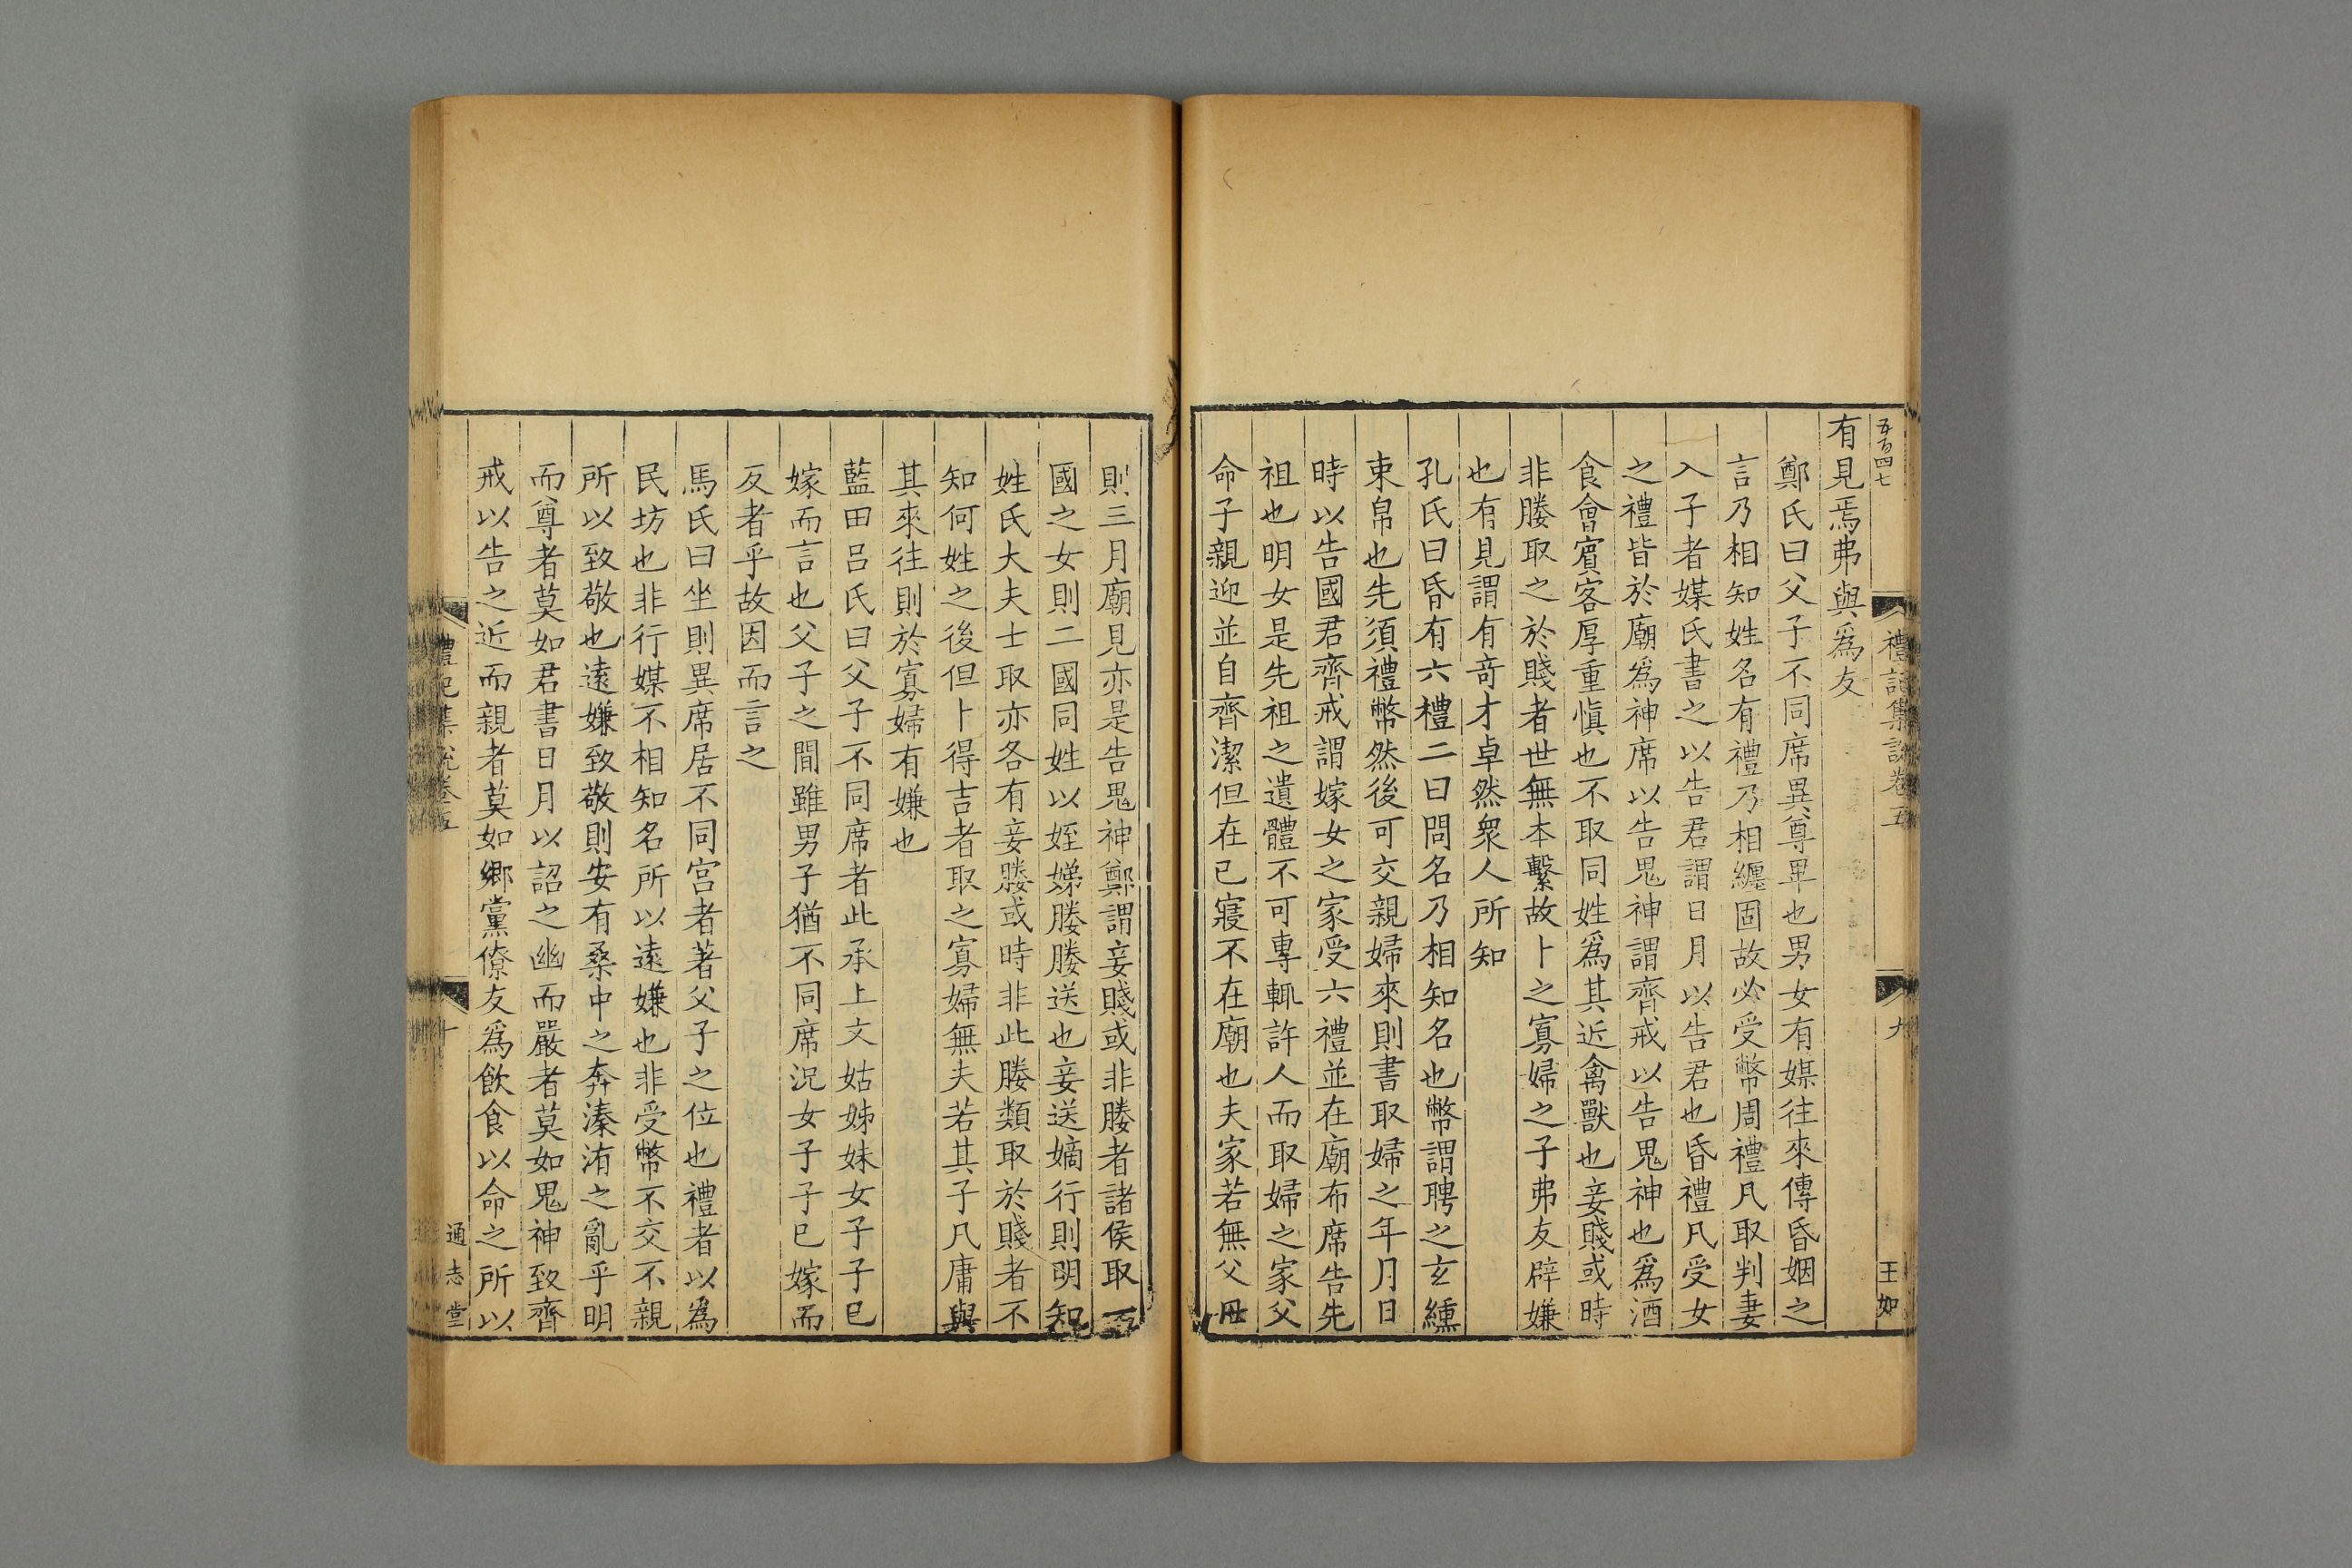 五百四七
禮記集說卷五
九
王如
有見焉弗與爲友
鄭氏曰父子不同席異尊卑也男女有媒往來傳昏姻之
言乃相知姓名有禮乃相纏固故必受幣周禮凡取判妻
入子者媒氏書之以告君謂日月以告君也昏禮凡受女
之禮皆於廟爲神席以告鬼神謂齊戒以告鬼神也爲酒
食會賓客厚重慎也不取同姓爲其近禽獸也妾賤或時
非媵取之於賤者世無本繫故卜之寡婦之子弗友辟嫌
也有見謂有奇才卓然衆人所知
孔氏曰昏有六禮二曰問名乃相知名也幣謂聘之玄纁
束帛也先須禮幣然後可交親婦來則書取婦之年月日
時以告國君齊戒謂嫁女之家受六禮並在廟布席告先
祖也明女是先祖之遺體不可專輒許人而取婦之家父
命子親迎並自齊潔但在己寢不在廟也夫家若無父母
則三月廟見亦是告鬼神鄭謂妾賤或非媵者諸侯取一
國之女則二國同姓以姪娣媵媵送也妾送嫡行則明知
姓氏大夫士取亦各有妾媵或時非此媵類取於賤者不
知何姓之後但卜得吉者取之寡婦無夫若其子凡庸與
其來往則於寡婦有嫌也
藍田呂氏曰父子不同席者此承上文姑姊妹女子子已
嫁而言也父子之間雖男子猶不同席況女子子已嫁而
反者乎故因而言之
馬氏曰坐則異席居不同宫者著父子之位也禮者以爲
民坊也非行媒不相知名所以遠嫌也非受幣不交不親
所以致敬也遠嫌致敬則安有桑中之奔溱洧之亂乎明
而尊者莫如君書日月以詔之幽而嚴者莫如鬼神致齊
戒以告之近而親者莫如鄉黨僚友爲飲食以命之所以
禮記集說卷五
十
通志堂